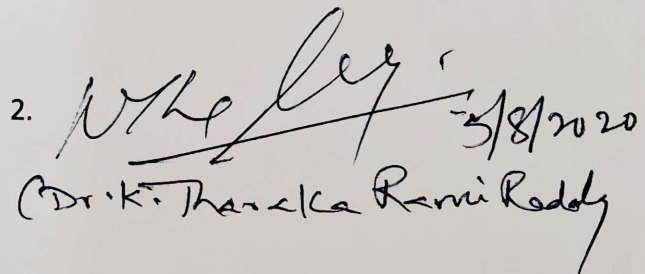 2. 5/8/2020
(Dr. K. Tharaka Rami Reddy